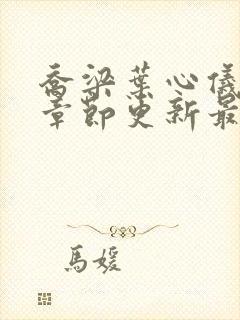 喬梁葉心儀
章節更新最
馬媛